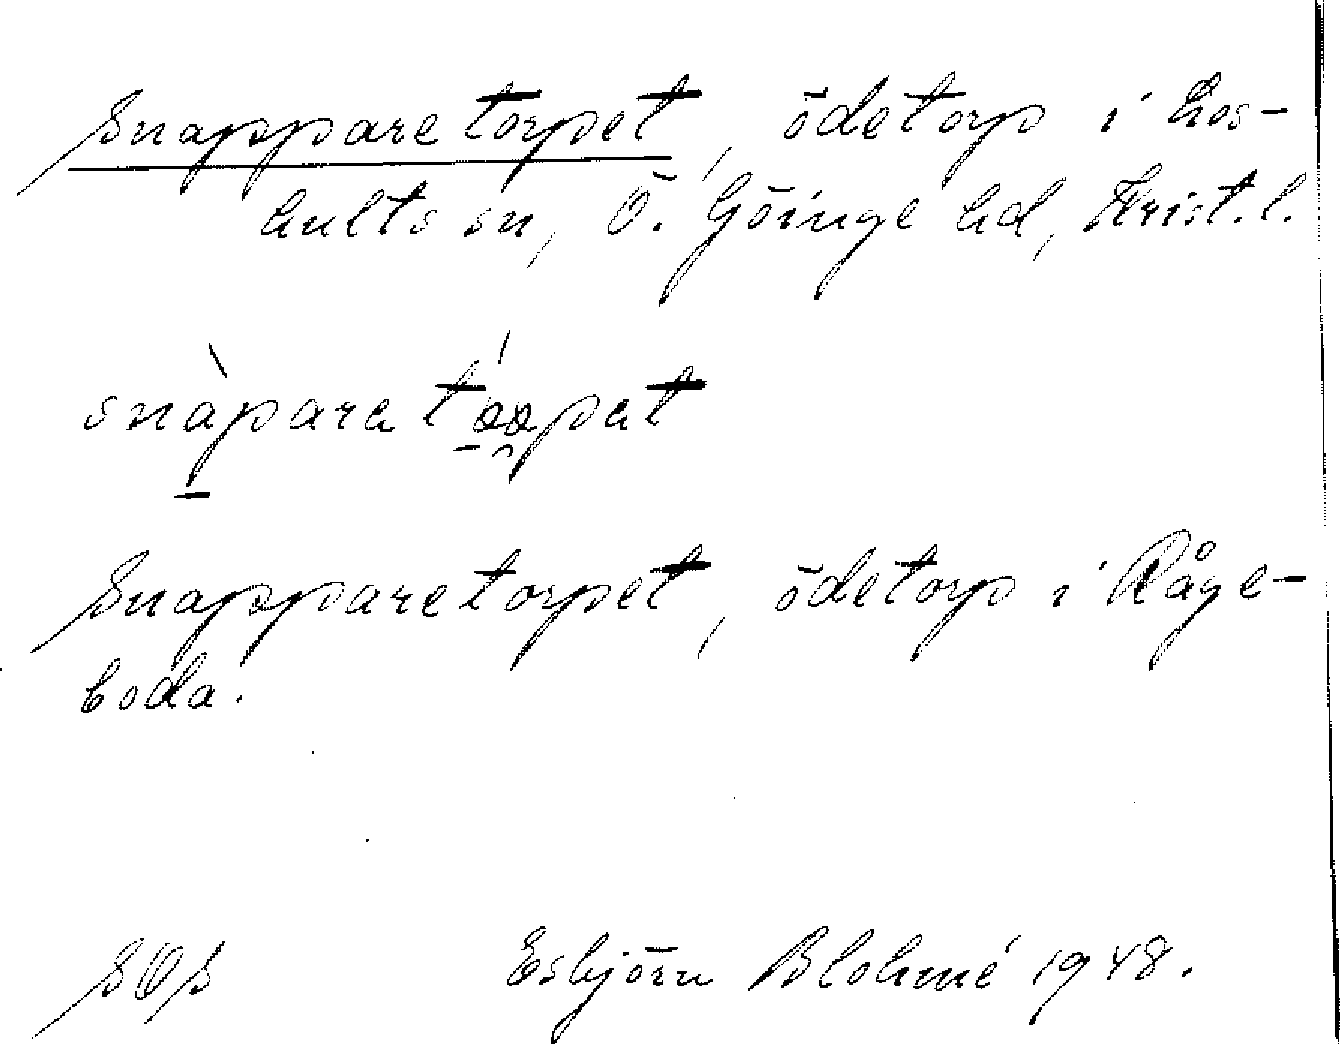 Snapparetorpet, ödetorp i Los-
hults sn, Ö. Göinge hd, Krist. l.
Snapparetorpet, ödetorp i Råge-
boda.
SOS Esbjörn Blohmé 1948.